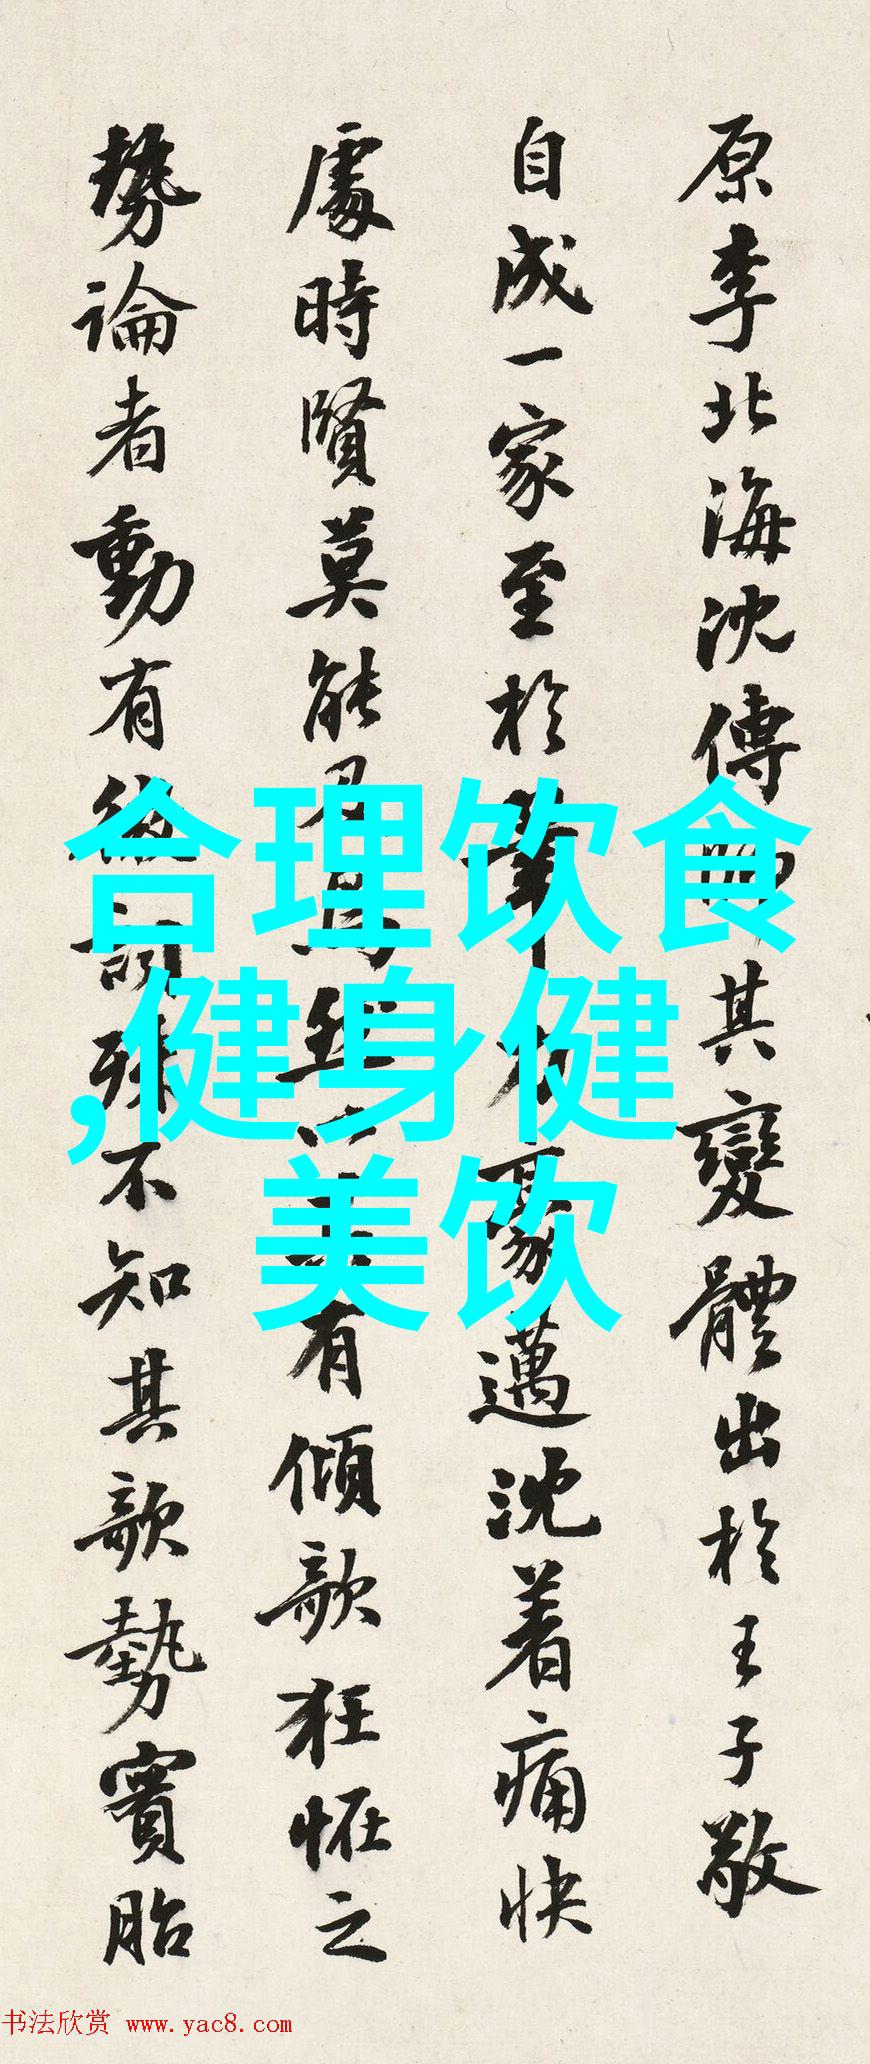 原李北海沈傳師其變體出於王子敬
自成一家至於筆力豪邁沈着痛快
處時賢莫能及有傾欹狂怪之
勢論者動有微詞殊不知其欹勢實胎
合理饮食
,健身健
美饮
书法欣赏 www.yac8.com